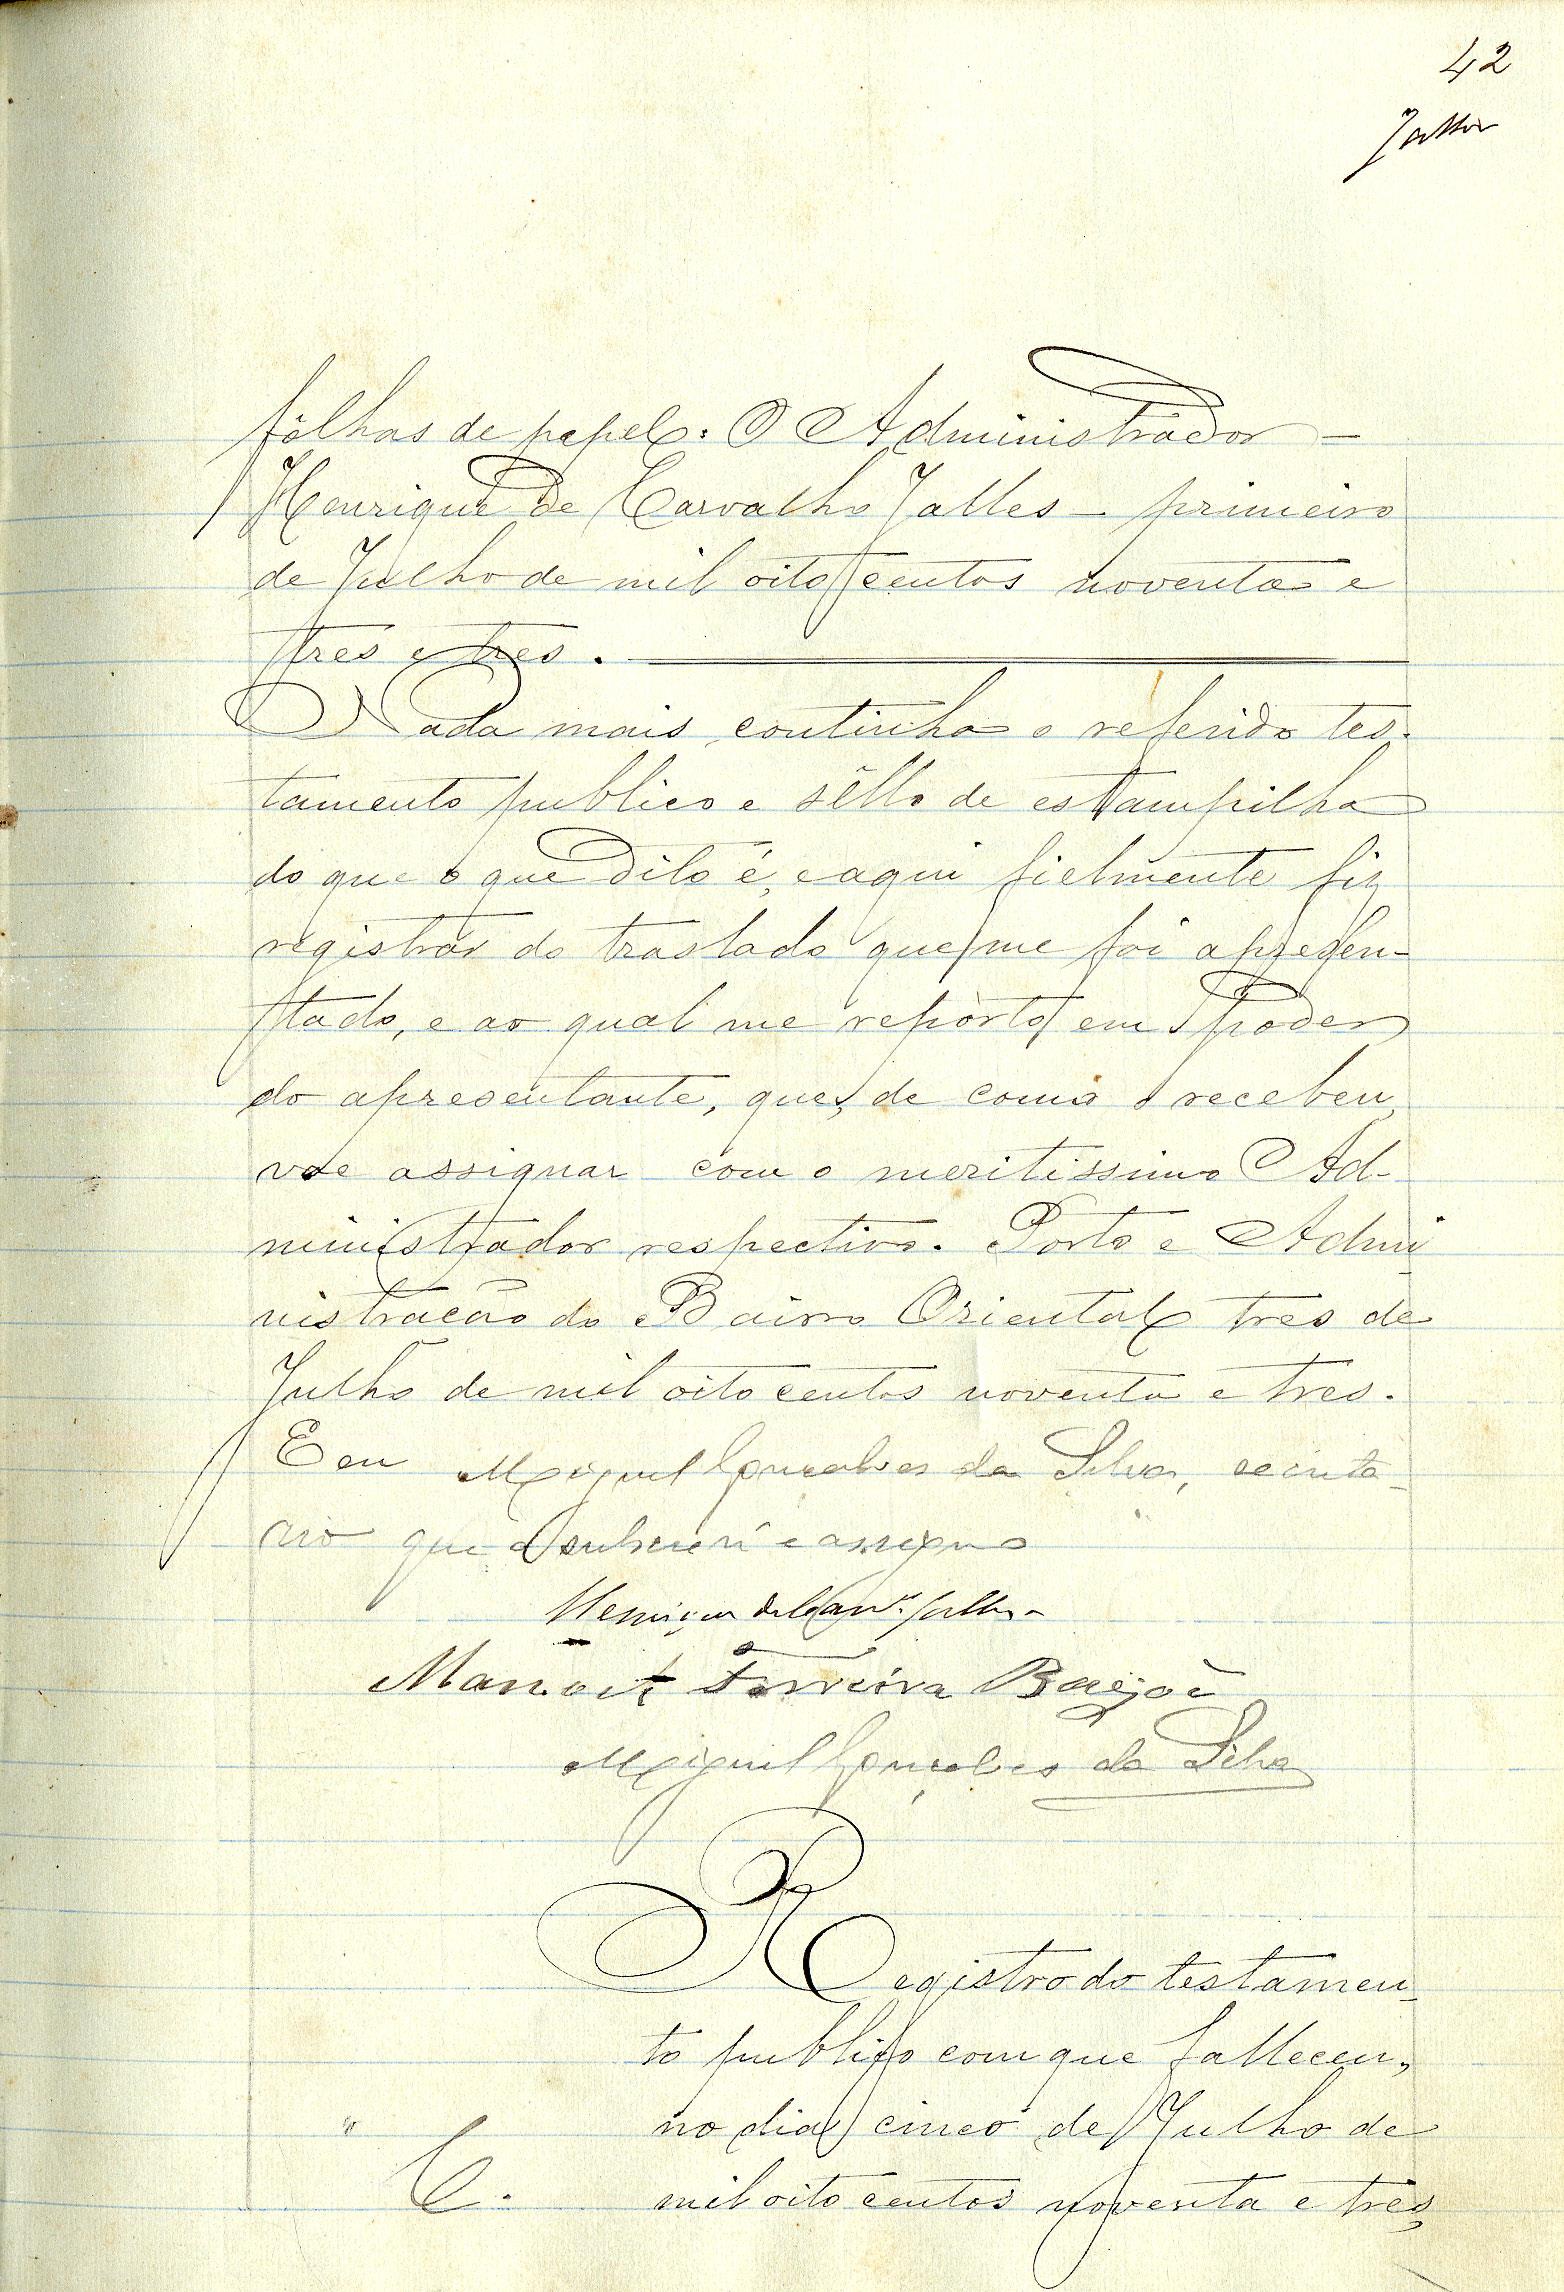 42
Jalles
fôlhas de papel. O Administrador —
Henrique de Carvalho Jalles — primeiro
de Julho de mil oito centos noventa e
tres e tres.
Nada mais continha o referido tes-
tamento publico e sêllo de estampilha
do que o que dito é, e aqui fielmente fiz
registrar do traslado que me foi apresen-
tado, e ao qual me reporto em poder
do apresentante, que, de como o recebeu,
vae assignar com o meritissimo Ad-
ministrador respectivo. Porto e Admi
nistração do Bairro Oriental tres de
Julho de mil oito centos noventa e tres.
E eu Miguel Gonçalves da Silva, secreta-
rio que o subscrevi e assigno
Henrique de Carv.º Jalles
Manoel Ferreira
Miguel Gonçalves da Silva
Registro do testamen-
to publico com que falleceu,
no dia cinco de Julho de
C. mil oito centos noventa e tres,